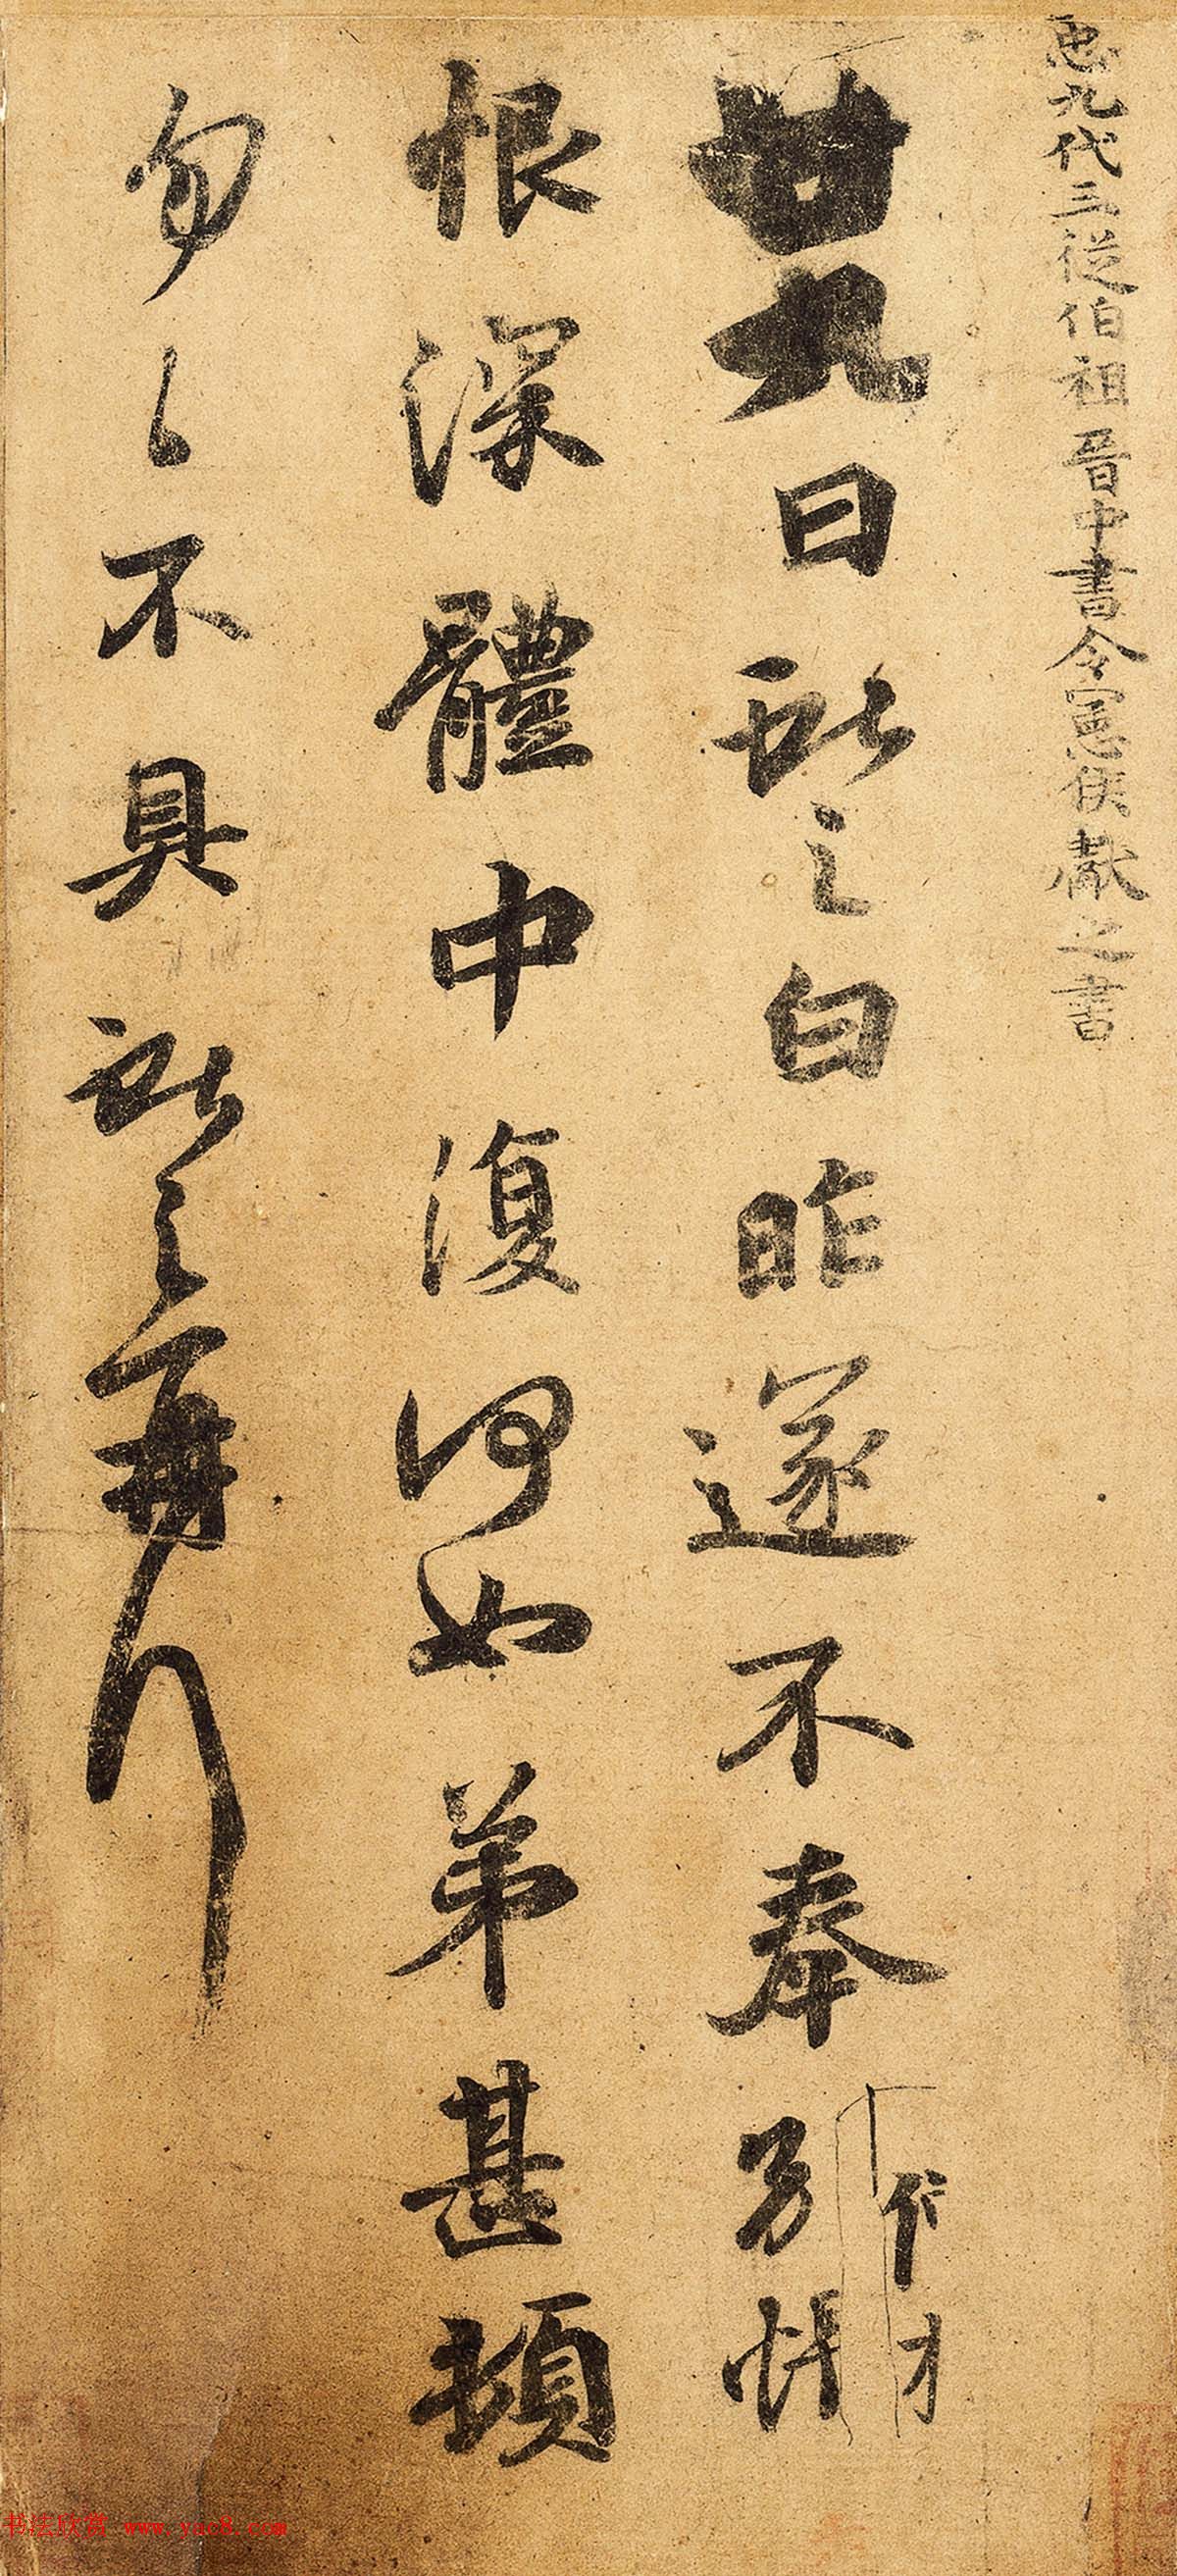 臣九代三從伯祖晉中書令憲侯獻之書
廿九日獻之白昨遂不奉別悵
恨深體中復何如弟甚頓
匆々不具獻之再拜
书法欣赏 www.yac8.com